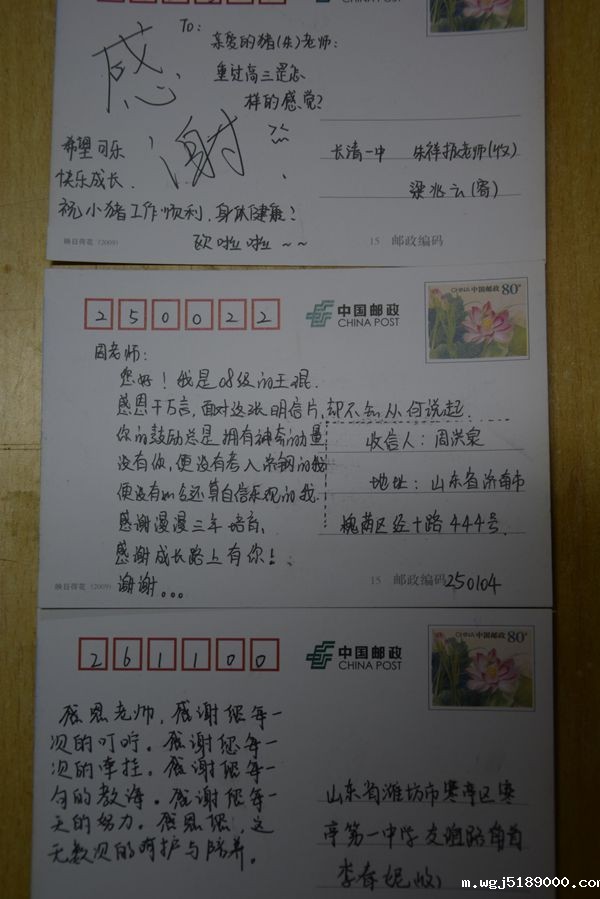 中国邮政
CHINA POST
To:
亲爱的猪(朱)老师:
重过高三是怎
样的感觉?
感
谢
!
希望可乐
快乐成长.
祝小猪工作顺利,身体健康!
欧啦啦~~
长清一中 朱祥振老师(收)
梁兆云(寄)
映日荷花 (2009)
15 邮政编码
250022
中国邮政
CHINA POST
CHINA 中国邮政 80分
周老师:
您好!我是08级的王琨.
感恩千万言,面对这张明信片,却不知从何说起.
你的鼓励总是拥有神奇的力量
没有你,便没有考入
的我
便没有如今还算自信乐观的我.
感谢漫漫三年培育,
感谢成长路上有你!
谢谢...
收信人:周洪泉
地址:山东省济南市
槐荫区经十路444号.
映日荷花 (2009)
15 邮政编码250104
261100
中国邮政
CHINA POST
CHINA 中国邮政 80分
感恩老师,感谢您每一
次的叮咛。感谢您每一
次的牵挂。感谢您每一
句的教诲。感谢您每一
天的努力。感恩您,这
无数次的呵护与培养。
山东省潍坊市寒亭区寒
亭第一中学友谊路
李春妮(收)
m.wgj5189000.com